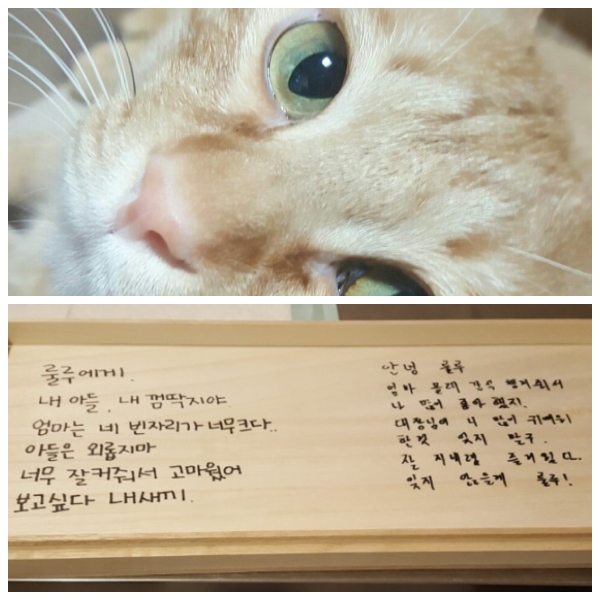 룰루에게.
내 아들, 내 껌딱지야
엄마는 네 빈자리가 너무크다..
아들은 외롭지마
너무 잘커줘서 고마웠어
보고싶다 내새끼.
안녕 룰루
엄마 몰래 간식 챙겨줘서
나 많이 좋아했지.
대장님이 니 많이 귀여워
한것 잊지 말구.
잘 지내렴 즐거웠다.
잊지 않을게 룰루!